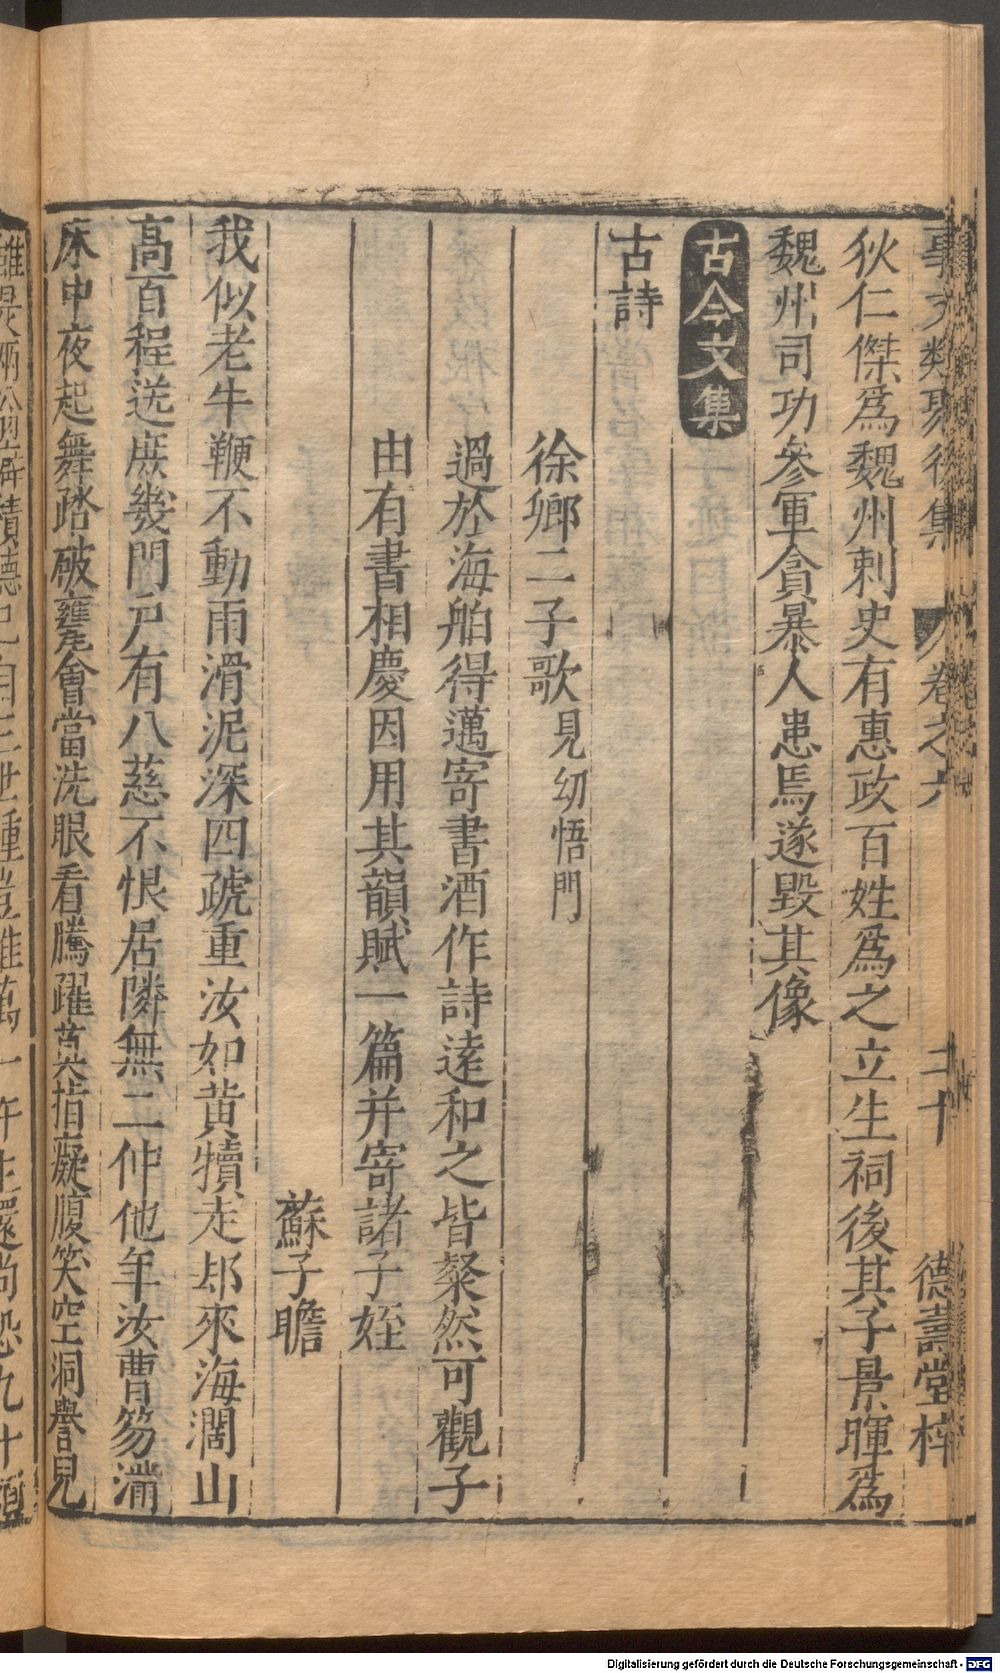 事文類聚後集 卷之六 二十 德壽堂梓
狄仁傑爲魏州刺史有惠政百姓爲之立生祠後其子景暉爲
魏州司功參軍貪暴人患焉遂毀其像
古今文集
古詩
徐鄉二子歌見幼悟門
過於海舶得邁寄書酒作詩逺和之皆粲然可觀子
由有書相慶因用其韻賦一篇并寄諸子姪
蘇子瞻
我似老牛鞭不動雨滑泥深四蹏重汝如黃犢走却來海濶山
高百程送庶幾門戶有八慈不恨居隣無二仲他年汝曹笏滿
床中夜起舞踏破甕會當洗眼看騰躍莫指癡腹笑空洞譽兒
雖是兩翁癖積德已自三世種豈惟萬一許生還尚恐九十
Digitalisierung gefördert durch die Deutsche Forschungsgemeinschaft - DFG